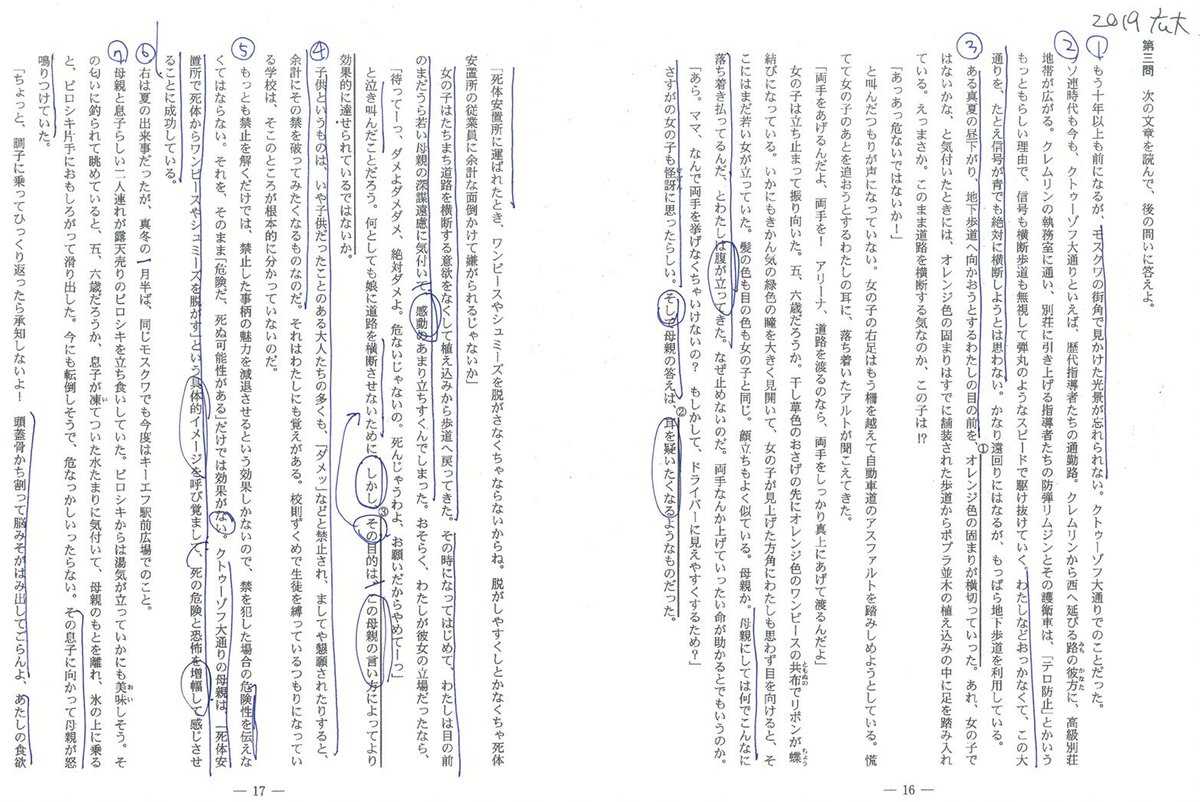 2019 九大
第三問　次の文章を読んで、後の問いに答えよ。
① もう十年以上も前になるが、モスクワの街角で見かけた光景が忘れられない。クトゥーゾフ大通りでのことだった。
② ソ連時代も今も、クトゥーゾフ大通りといえば、歴代指導者たちの通勤路。クレムリンから西へ延びる路の彼方に、高級別荘
地帯が広がる。クレムリンの執務室に通い、別荘に引き上げる指導者たちの防弾リムジンとその護衛車は、「テロ防止」とかいう
もっともらしい理由で、信号も横断歩道も無視して弾丸のようなスピードで駆け抜けていく。わたしなどおっかなくて、この大
通りを、たとえ信号が青でも絶対に横断しようとは思わない。かなり遠回りにはなるが、もっぱら地下歩道を利用している。
③ ある真夏の昼下がり、地下歩道へ向かおうとするわたしの目の前を、①オレンジ色の固まりが横切っていった。あれ、女の子で
はないかな、と気付いたときには、オレンジ色の固まりはすでに舗装された歩道からポプラ並木の植え込みの中に足を踏み入れ
ている。えっまさか。このまま道路を横断する気なのか、この子は!?
「あっあっ危ないではないか！」
と叫んだつもりが声になっていない。女の子の右足はもう柵を越えて自動車道のアスファルトを踏みしめようとしている。慌
てて女の子のあとを追おうとするわたしの耳に、落ち着いたアルトが聞こえてきた。
「両手をあげるんだよ、両手を！　アリーナ、道路を渡るのなら、両手をしっかり真上にあげて渡るんだよ」
女の子は立ち止まって振り向いた。五、六歳だろうか。干し草色のおさげの先にオレンジ色のワンピースの共布でリボンが蝶
結びになっている。いかにもきかん気の緑色の瞳を大きく見開いて、女の子が見上げた方角にわたしも思わず目を向けると、そ
こにはまだ若い女が立っていた。髪の色も目の色も女の子と同じ。顔立ちもよく似ている。母親か。母親にしては何でこんなに
落ち着き払ってるんだ、とわたしは腹が立ってきた。なぜ止めないのだ。両手なんか上げていったい命が助かるとでもいうのか。
「あら。ママ、なんで両手を挙げなくちゃいけないの？　もしかして、ドライバーに見えやすくするため？」
さすがの女の子も怪訝に思ったらしい。そして母親の答えは、②耳を疑いたくなるようなものだった。
— 16 —
「死体安置所に運ばれたとき、ワンピースやシュミーズを脱がさなくちゃならないからね。脱がしやすくしとかなくちゃ死体
安置所の従業員に余計な面倒かけて嫌がられるじゃないか」
女の子はたちまち道路を横断する意欲をなくして植え込みから歩道へ戻ってきた。その時になってはじめて、わたしは目の前
のまだうら若い母親の深謀遠慮に気付いて、感動のあまり立ちすくんでしまった。おそらく、わたしが彼女の立場だったなら、
「待ってーっ、ダメよダメダメ、絶対ダメよ。危ないじゃないの。死んじゃうわよ、お願いだからやめてーっ」
と泣き叫んだことだろう。何としても娘に道路を横断させないために。しかし、③その目的は、この母親の言い方によってより
効果的に達せられているではないか。
④ 子供というものは、いや子供だったことのある大人たちの多くも、「ダメッ」などと禁止され、ましてや懇願されたりすると、
余計にその禁を破ってみたくなるものなのだ。それはわたしにも覚えがある。校則ずくめで生徒を縛っているつもりになってい
る学校は、そこのところが根本的に分かっていないのだ。
⑤ もっとも禁止を解くだけでは、禁止した事柄の魅力を減退させるという効果しかないので、禁を犯した場合の危険性を伝えな
くてはならない。それを、そのまま「危険だ、死ぬ可能性がある」だけでは効果がない。クトゥーゾフ大通りの母親は、「死体安
置所で死体からワンピースやシュミーズを脱がす」という具体的イメージを呼び覚まして、死の危険と恐怖を増幅して感じさせ
ることに成功している。
⑥ 右は夏の出来事だったが、真冬の一月半ば、同じモスクワでも今度はキーエフ駅前広場でのこと。
⑦ 母親と息子らしい二人連れが露天売りのピロシキを立ち食いしていた。ピロシキからは湯気が立っていかにも美味しそう。そ
の匂いに釣られて眺めていると、五、六歳だろうか、息子が凍てついた水たまりに気付いて、母親のもとを離れ、氷の上に乗る
と、ピロシキ片手におもしろがって滑り出した。今にも転倒しそうで、危なっかしいったらない。その息子に向かって母親が怒
鳴りつけていた。
「ちょっと、調子に乗ってひっくり返ったら承知しないよ！　頭蓋骨かち割って脳みそがはみ出してごらんよ、あたしの食欲
— 17 —